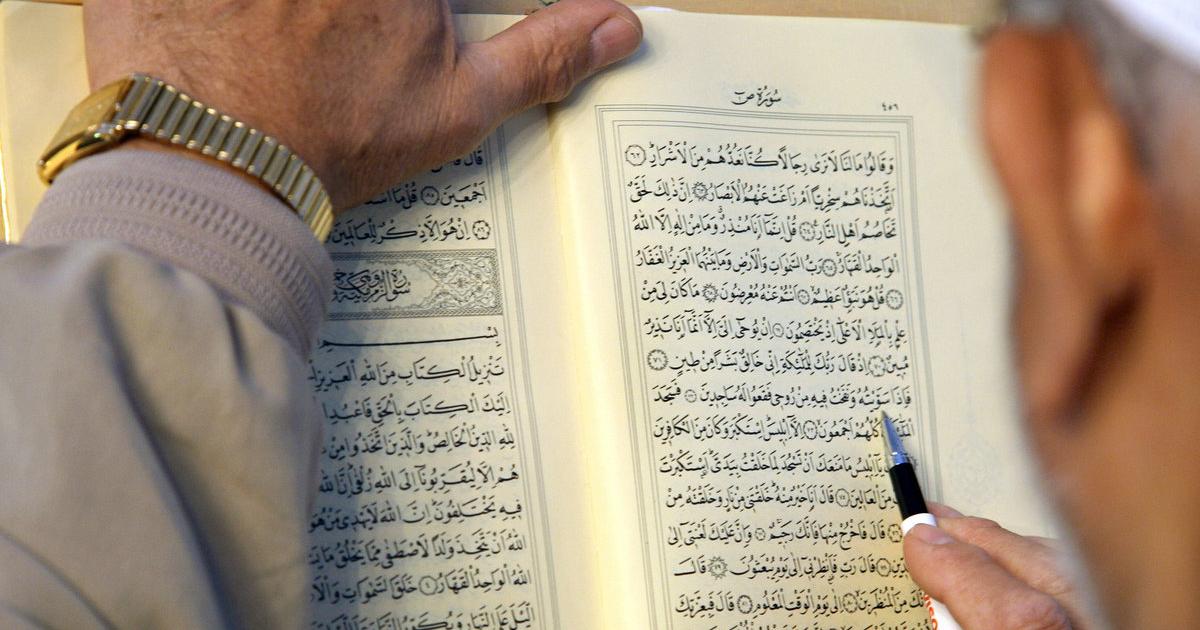 ٤٥٦ سُورَةُ ص
وَقَالُوا مَا لَنَا لَا نَرٰى رِجَالًا كُنَّا نَعُدُّهُمْ مِنَ الْاَشْرَارِ ﴿٦٢﴾
اَتَّخَذْنَاهُمْ سِخْرِيًّا اَمْ زَاغَتْ عَنْهُمُ الْاَبْصَارُ ﴿٦٣﴾ اِنَّ ذٰلِكَ لَحَقٌّ
تَخَاصُمُ اَهْلِ النَّارِ ﴿٦٤﴾ قُلْ اِنَّمَا اَنَا مُنْذِرٌ وَمَا مِنْ اِلٰهٍ اِلَّا اللّٰهُ
الْوَاحِدُ الْقَهَّارُ ﴿٦٥﴾ رَبُّ السَّمٰوَاتِ وَالْاَرْضِ وَمَا بَيْنَهُمَا الْعَزِيزُ الْغَفَّارُ
﴿٦٦﴾ قُلْ هُوَ نَبَؤٌا عَظِيمٌ ﴿٦٧﴾ اَنْتُمْ عَنْهُ مُعْرِضُونَ ﴿٦٨﴾ مَا كَانَ لِيَ مِنْ
عِلْمٍ بِالْمَلَاِ الْاَعْلٰى اِذْ يَخْتَصِمُونَ ﴿٦٩﴾ اِنْ يُوحٰى اِلَيَّ اِلَّا اَنَّمَا اَنَا نَذِيرٌ
مُبِينٌ ﴿٧٠﴾ اِذْ قَالَ رَبُّكَ لِلْمَلٰئِكَةِ اِنِّي خَالِقٌ بَشَرًا مِنْ طِينٍ ﴿٧١﴾
فَاِذَا سَوَّيْتُهُ وَنَفَخْتُ فِيهِ مِنْ رُوحِي فَقَعُوا لَهُ سَاجِدِينَ ﴿٧٢﴾ فَسَجَدَ
كُلُّهُمْ اَجْمَعُونَ ﴿٧٣﴾ اِلَّا اِبْلِيسَ اِسْتَكْبَرَ وَكَانَ مِنَ الْكَافِرِينَ
يَا اِبْلِيسُ مَا مَنَعَكَ اَنْ تَسْجُدَ لِمَا خَلَقْتُ بِيَدَيَّ اَسْتَكْبَرْتَ
مِنَ الْعَالِينَ ﴿٧٥﴾ قَالَ اَنَا خَيْرٌ مِنْهُ خَلَقْتَنِي مِنْ نَارٍ وَخَلَقْتَهُ مِنْ
قَالَ فَاخْرُجْ مِنْهَا فَاِنَّكَ رَجِيمٌ ﴿٧٧﴾ وَاِنَّ عَلَيْكَ لَعْنَتِي اِلٰى
قَالَ رَبِّ فَاَنْظِرْنِي اِلٰى يَوْمِ يُبْعَثُونَ ﴿٧٩﴾ قَالَ
مِنَ الْمُنْظَرِينَ ﴿٨٠﴾ اِلٰى يَوْمِ الْوَقْتِ الْمَعْلُومِ ﴿٨١﴾ قَالَ فَبِعِزَّتِكَ
قَالَ
اَجْمَعِينَ ﴿٨٥﴾ قُلْ مَا
﴿٨٦﴾ اِنْ هُوَ اِلَّا ذِكْرٌ لِلْعَالَمِينَ
سُورَةُ الزُّمَرِ
بِسْـــ
تَنْزِيلُ الْكِتَابِ مِنَ اللّٰهِ الْعَزِيزِ
اِلَيْكَ الْكِتَابَ بِالْحَقِّ فَاعْبُدِ
لِلّٰهِ الدِّينُ الْخَالِصُ وَالَّذِينَ اتَّخَذُوا مِنْ
هُمْ اِلَّا لِيُقَرِّبُونَا اِلَى اللّٰهِ زُلْفٰى اِنَّ اللّٰهَ
فِيهِ يَخْتَلِفُونَ اِنَّ اللّٰهَ لَا يَهْدِي مَنْ هُوَ
اللّٰهُ اَنْ يَتَّخِذَ وَلَدًا لَاصْطَفٰى مِمَّا يَخْلُقُ مَا
اللّٰهُ الْوَاحِدُ الْقَهَّارُ ﴿٤﴾ خَلَقَ السَّمٰوَاتِ وَالْاَ
الَّيْلَ عَلَى النَّهَارِ وَيُكَوِّرُ النَّهَارَ